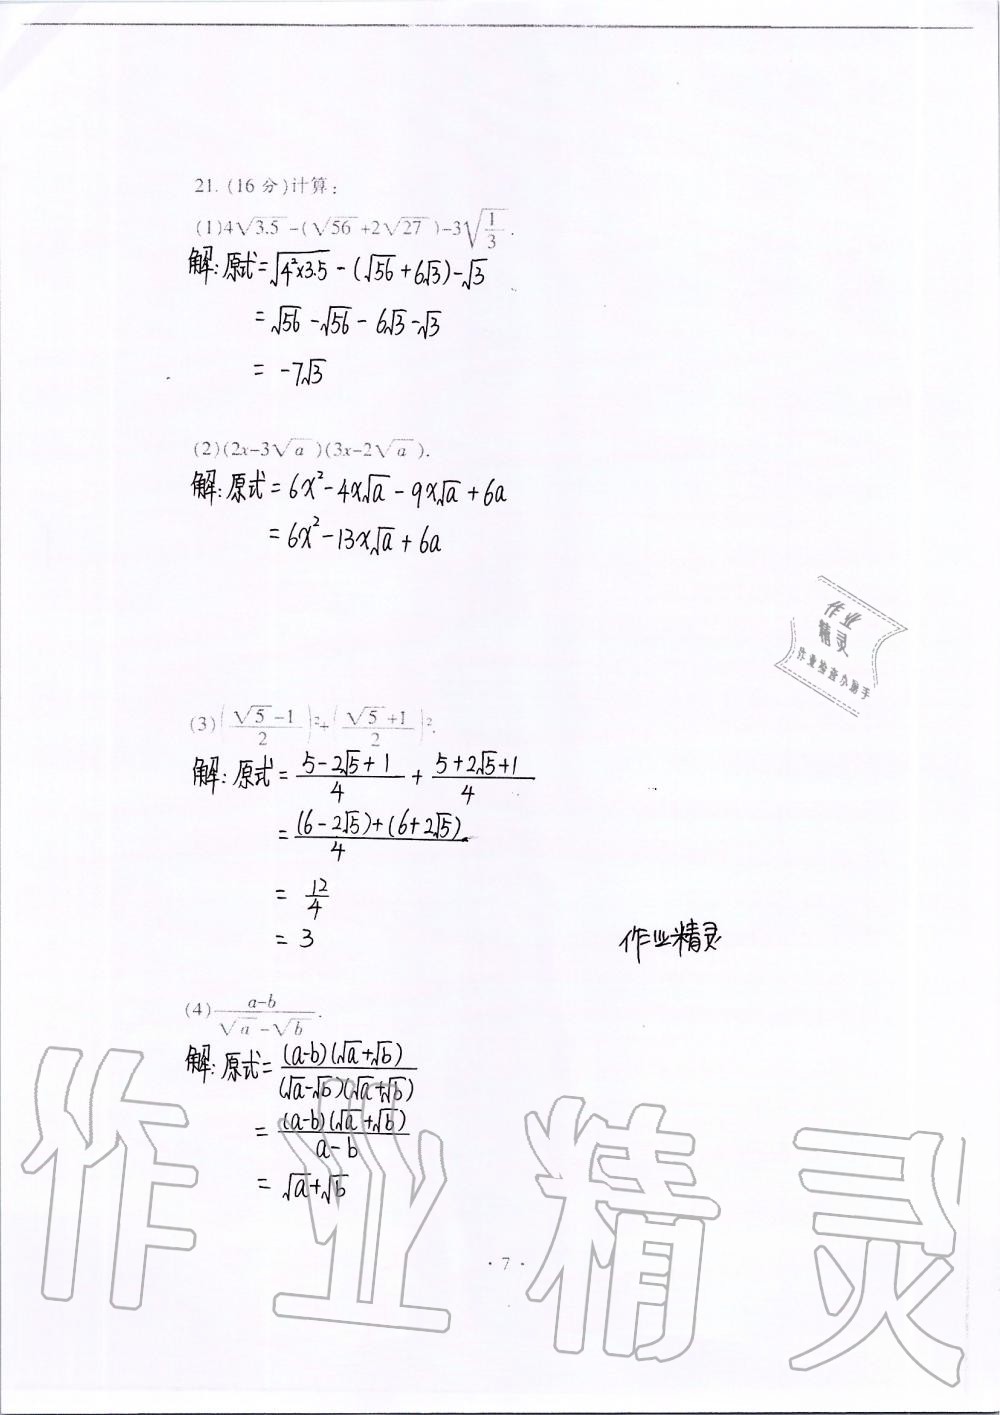 21.(16分)计算:
(1)4√3.5-(√56+2√27)-3√(1/3).
解:原式=√(4²×3.5)-(√56+6√3)-√3
=√56-√56-6√3-√3
=-7√3
(2)(2x-3√a)(3x-2√a).
解:原式=6x²-4x√a-9x√a+6a
=6x²-13x√a+6a
作业
精灵
作业检查小助手
(3)((√5-1)/2)²+((√5+1)/2)².
解:原式=(5-2√5+1)/4+(5+2√5+1)/4
=((6-2√5)+(6+2√5))/4
=12/4
=3
作业精灵
(4)(a-b)/(√a-√b).
解:原式=(a-b)(√a+√b)/(√a-√b)(√a+√b)
=(a-b)(√a+√b)/a-b
=√a+√b
作业精灵
·7·